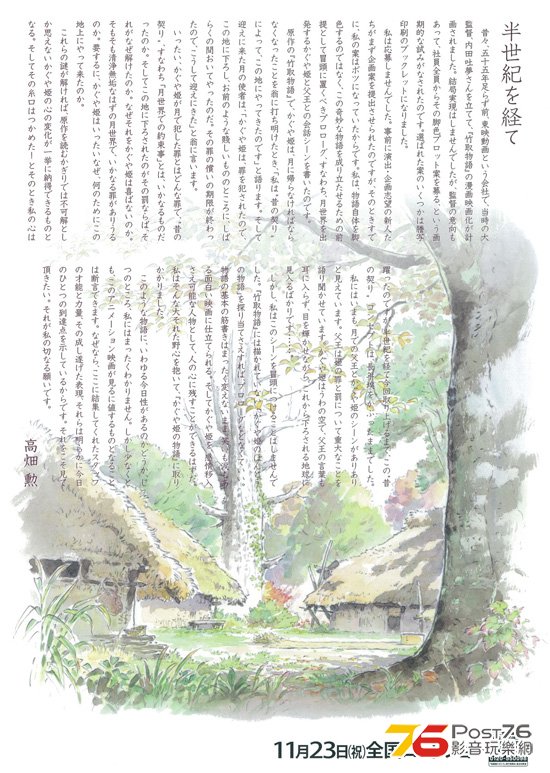 半世紀を経て
昔々、五十五年足らず前、東映動画という会社で、当時の大
監督、内田吐夢さんを立てて、『竹取物語』の漫画映画化が計
画されました。結局実現はしませんでしたが、監督の意向も
あって、社員全員からその脚色プロット案を募る、という画
期的な試みがなされたのです。選ばれた案のいくつかは謄写
印刷のブックレットになりました。
私は応募しませんでした。事前に演出・企画志望の新人た
ちがまず企画案を提出させられたのですが、そのときすで
に、私の案はボツになっていたからです。私は、物語自体を脚
色するのではなく、この奇妙な物語を成り立たせるための前
提として冒頭に置くべきプロローグ、すなわち、月世界を出
発するかぐや姫と父王との会話シーンを書いたのです。
原作の『竹取物語』で、かぐや姫は、月に帰らなければなら
なくなったことを翁に打ち明けたとき、「私は、“昔の契り”
によって、この地にやってきたのです」と語ります。そして
迎えに来た月の使者は、「かぐや姫は、罪を犯されたので、
この地に下ろし、お前のような賤しいもののところに、しば
らくの間おいてやったのだ。その罪の償いの期限が終わっ
たので、こうして迎えにきた」と翁に言います。
いったい、かぐや姫が月で犯した罪とはどんな罪で、“昔の
契り”、すなわち「月世界での約束事」とは、いかなるものだ
ったのか。そしてこの地に下ろされたのがその罰ならば、そ
れがなぜ解けたのか。なぜそれをかぐや姫は喜ばないのか。
そもそも清浄無垢なはずの月世界で、いかなる罪がありうる
のか。要するに、かぐや姫はいったいなぜ、何のためにこの
地上にやって来たのか。
これらの謎が解ければ、原作を読むかぎりでは不可解とし
か思えないかぐや姫の心の変化が一挙に納得できるものと
なる。そしてその糸口はつかめた!とそのとき私の心は
躍ったのですが、半世紀を経て今回取り上げるまで、この“昔
の契り”コンセプトは、長年埃をかぶったままでした。
私にはいまも、月での父王とかぐや姫のシーンがありあり
と見えています。父王は姫の罪と罰について重大なことを
語り聞かせています。かぐや姫はうわの空で、父王の言葉も
耳に入らず、目を輝かせながら、これから下ろされる地球に
見入るばかりです……。
しかし、私はこのシーンを冒頭につけることはしませんで
した。『竹取物語』には描かれていないかぐや姫の
の物語」を探り当てさえすれば、プロローグなどなくていい。
物語の基本の筋書きはまったく変えないまま、
る面白い映画に仕立てられる。そしてかぐや姫は、感情移入
さえ可能な人物として、人の心に残すことができるはずだ。
私はそんな大それた野心を抱いて、『かぐや姫の物語』に取り
かかりました。
このような物語に、いわゆる今日性があるのかどうか、じ
つのところ、私にはまったくわかりません。しかし少なくと
も、このアニメーション映画が見るに値するものとなること
は断言できます。なぜなら、ここに結集してくれたスタッフ
の才能と力量、その成し遂げた表現、それらは明らかに今日
のひとつの到達点を示しているからです。それをこそ見て
頂きたい。それが私の切なる願いです。
高畑 勲
11月23日(祝)全国
76 Post76
影音玩樂網